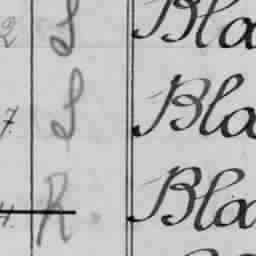 2 S Bla
7. S Bla
4. R. Bla